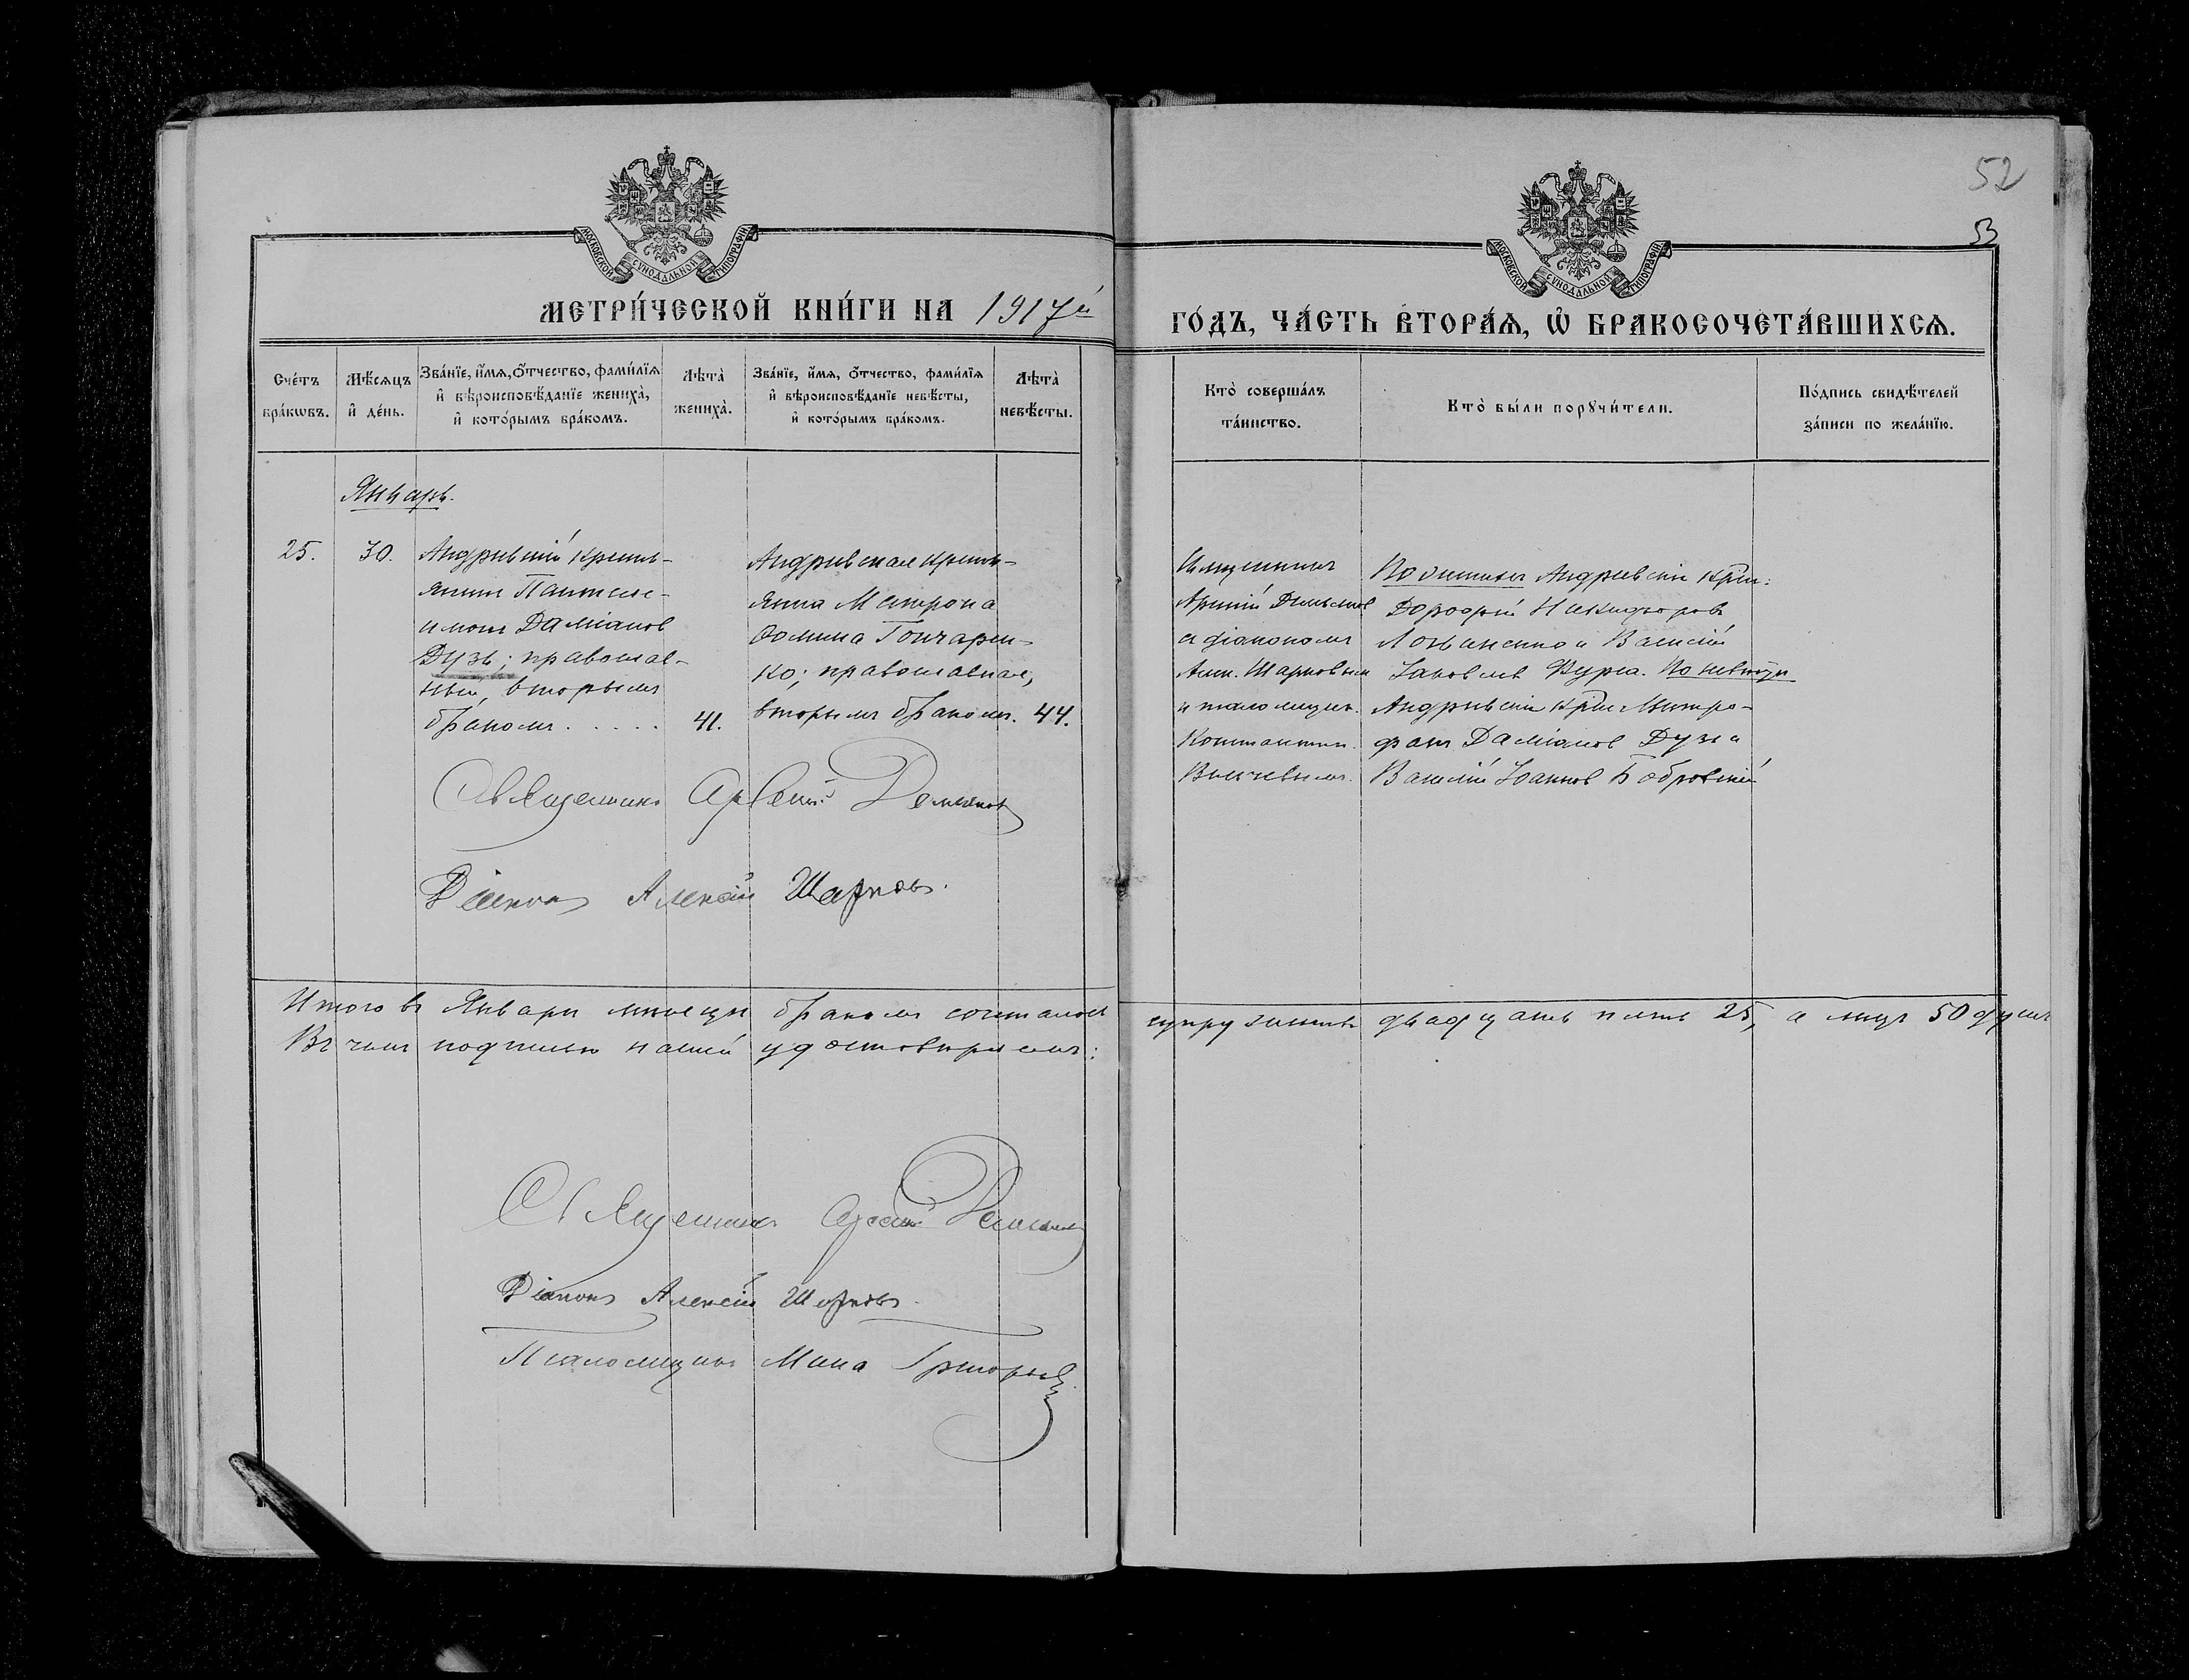 52
53
МОСКОВСКОЙ СѴНОДАЛЬНОЙ ТИПОГРАФІИ
МОСКОВСКОЙ СѴНОДАЛЬНОЙ ТИПОГРАФІИ
МЕТРИ́ЧЕСКОЙ КНИ́ГИ НА 1917й
ГО́ДЪ, ЧА́СТЬ ВТОРА́Ѧ, Ѽ БРАКОСОЧЕТА́ВШИХСѦ.
Сче́тъ бра́кѡвъ.
Мѣ́сѧцъ и҆ де́нь.
Зва́нїе, и҆́мѧ, ѻ҆́тчество, фами́лїѧ
и҆ вѣроисповѣ́данїе жениха̀,
и҆ кото́рымъ бра́комъ.
Лѣта̀ жениха̀.
Зва́нїе, и҆́мѧ, ѻ҆́тчество, фами́лїѧ
и҆ вѣроисповѣ́данїе невѣ́сты,
и҆ кото́рымъ бра́комъ.
Лѣта̀ невѣ́сты.
Кто̀ соверша́лъ
та́инство.
Кто̀ бы́ли порꙋчи́тели.
По́дпись свидѣ́телей
за́писи по жела́нїю.
Январь.
25.
30.
Андреевскій крестья-
нинъ Пантеле-
имонъ Даміановъ
Дузь; православ-
ный, вторымъ
бракомъ . . . . .
41.
Андреевская крестья-
янка Матрона
Ѳомина Гончарен-
ко; православная,
вторымъ бракомъ.
44.
Священникъ
Арсеній Демьяновъ
съ діакономъ
Алек. Шарковымъ
и псаломщик.
Константин.
По женихѣ Андреевскіе крес:
Дорофей Никифоровъ
и Василій
Іаковлевъ Фурса. По невѣстѣ
Андреевскіе крес Митро-
фанъ Даміановъ Дузь и
Василій Іоанновъ Бобровскій
Священникъ Арсеній Демьяновъ
Діаконъ Алексій Шарковъ.
Итого въ Январѣ мѣсяцѣ бракомъ сочеталось супружествъ двадцать пять 25, а лицъ 50 душъ
Въ чемъ подписью нашей удостовѣряемъ:
Священникъ Арсеній Демьяновъ
Діаконъ Алексій Шарковъ.
Псаломщикъ Мина Григорьевъ